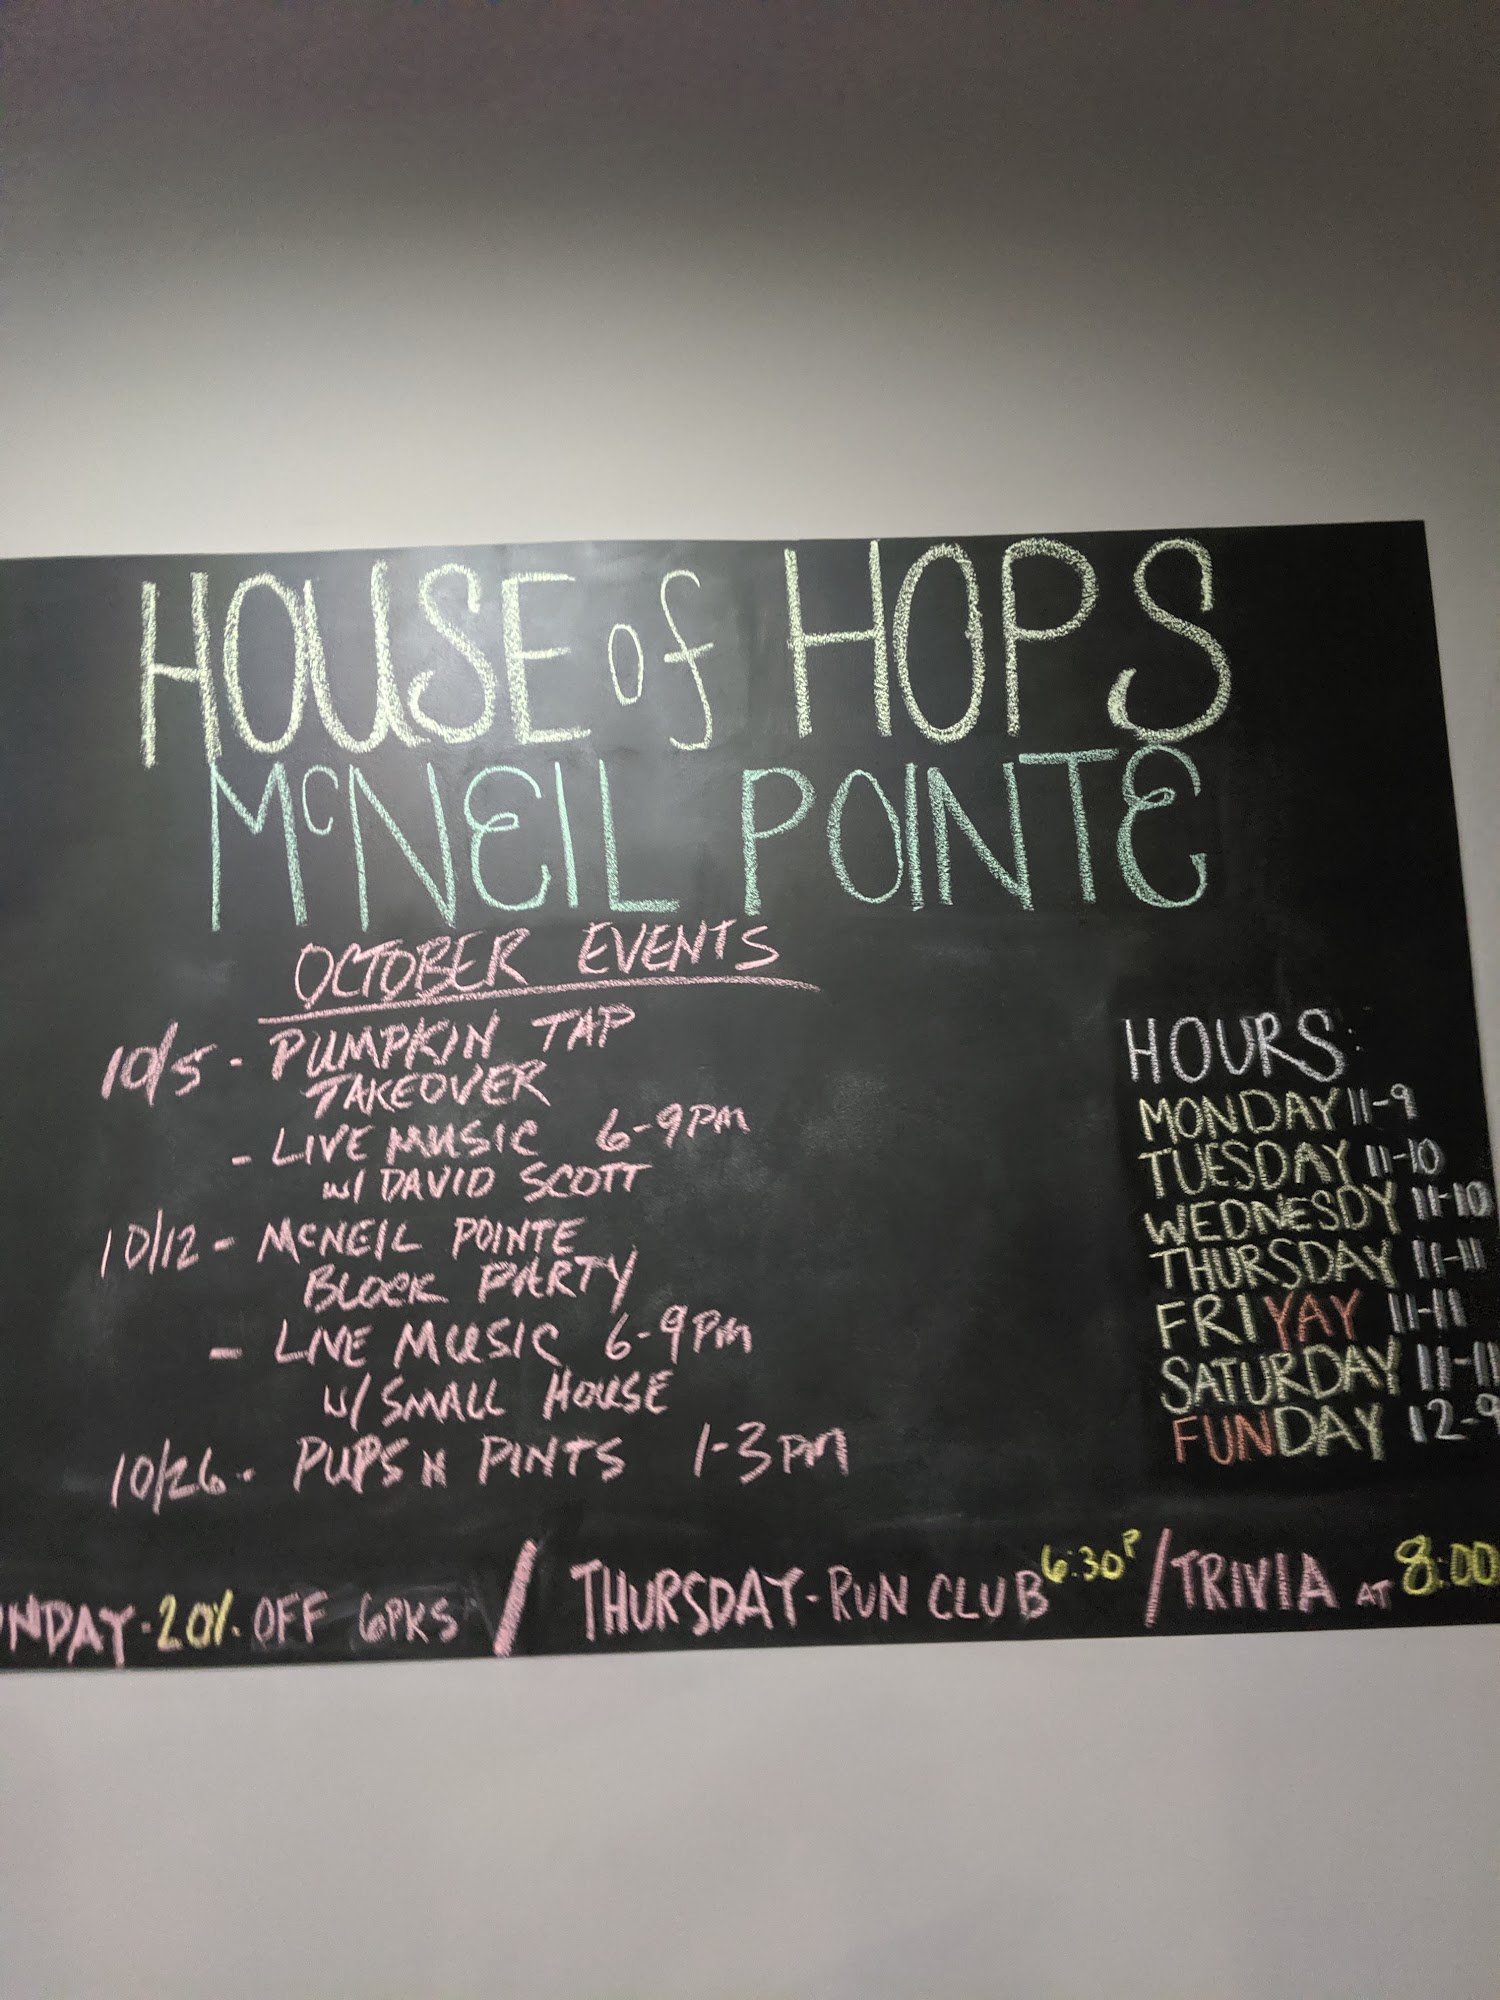 HOUSE of HOPS
McNEIL POINTE
OCTOBER EVENTS
10/5 - PUMPKIN TAP
TAKEOVER
- LIVE MUSIC 6-9PM
w/ DAVID SCOTT
10/12 - McNEIL POINTE
BLOCK PARTY
- LIVE MUSIC 6-9PM
w/ SMALL HOUSE
10/26 - PUPS N PINTS 1-3PM
HOURS:
MONDAY 11-9
TUESDAY 11-10
WEDNESDY 11-10
THURSDAY 11-11
FRIYAY 11-11
SATURDAY 11-11
FUNDAY 12-9
NDAY - 20% OFF 6PKS / THURSDAY - RUN CLUB 6:30P / TRIVIA AT 8:00